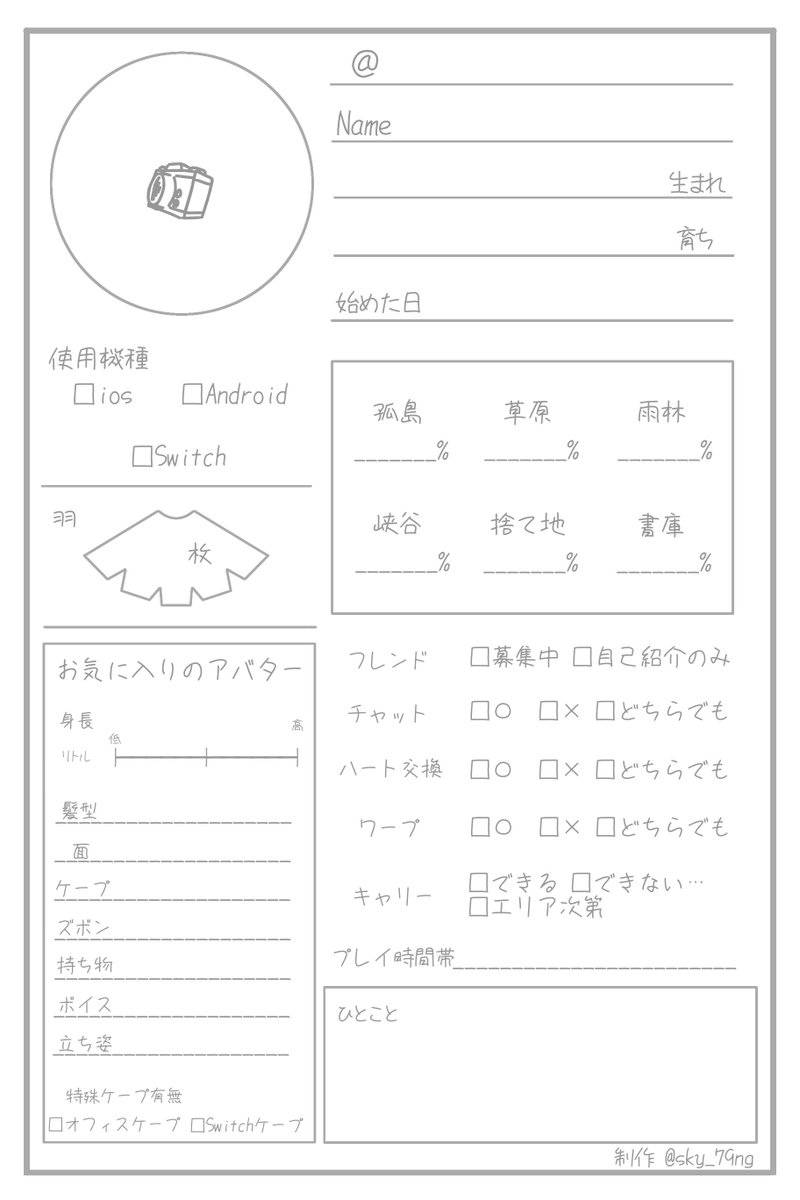 @
Name
生まれ
育ち
始めた日
使用機種
□ios □Android
□Switch
羽
枚
孤島 草原 雨林
_______% _______% _______%
峡谷 捨て地 書庫
_______% _______% _______%
お気に入りのアバター
身長
低 高
リトル
髪型
面
ケープ
ズボン
持ち物
ボイス
立ち姿
特殊ケープ有無
□オフィスケープ □Switchケープ
フレンド □募集中 □自己紹介のみ
チャット □○ □× □どちらでも
ハート交換 □○ □× □どちらでも
ワープ □○ □× □どちらでも
キャリー □できる □できない…
□エリア次第
プレイ時間帯
ひとこと
制作 @sky_79ng